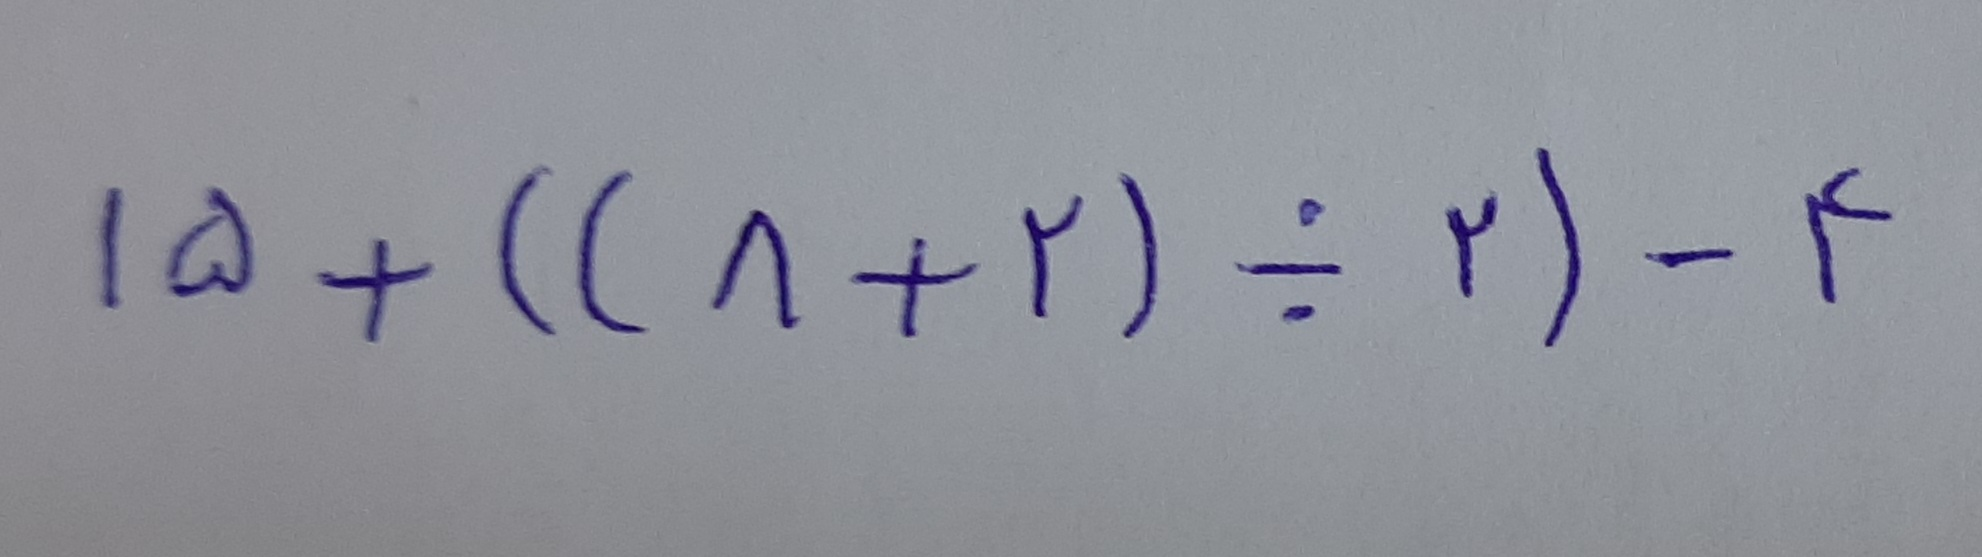 ۱۵ + ((۸ + ۲) ÷ ۲) - ۴